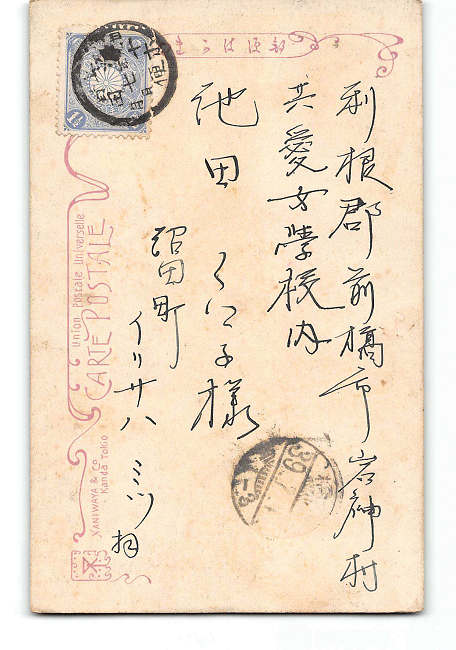 きかは便郵
利根郡前橋市岩神村
共愛女学校内
池田くに子様
沼田町
イリサハ
Union Postale Universelle
CARTE POSTALE
XANIWAYA & Co
Kanda Tokio
1½
39.7.